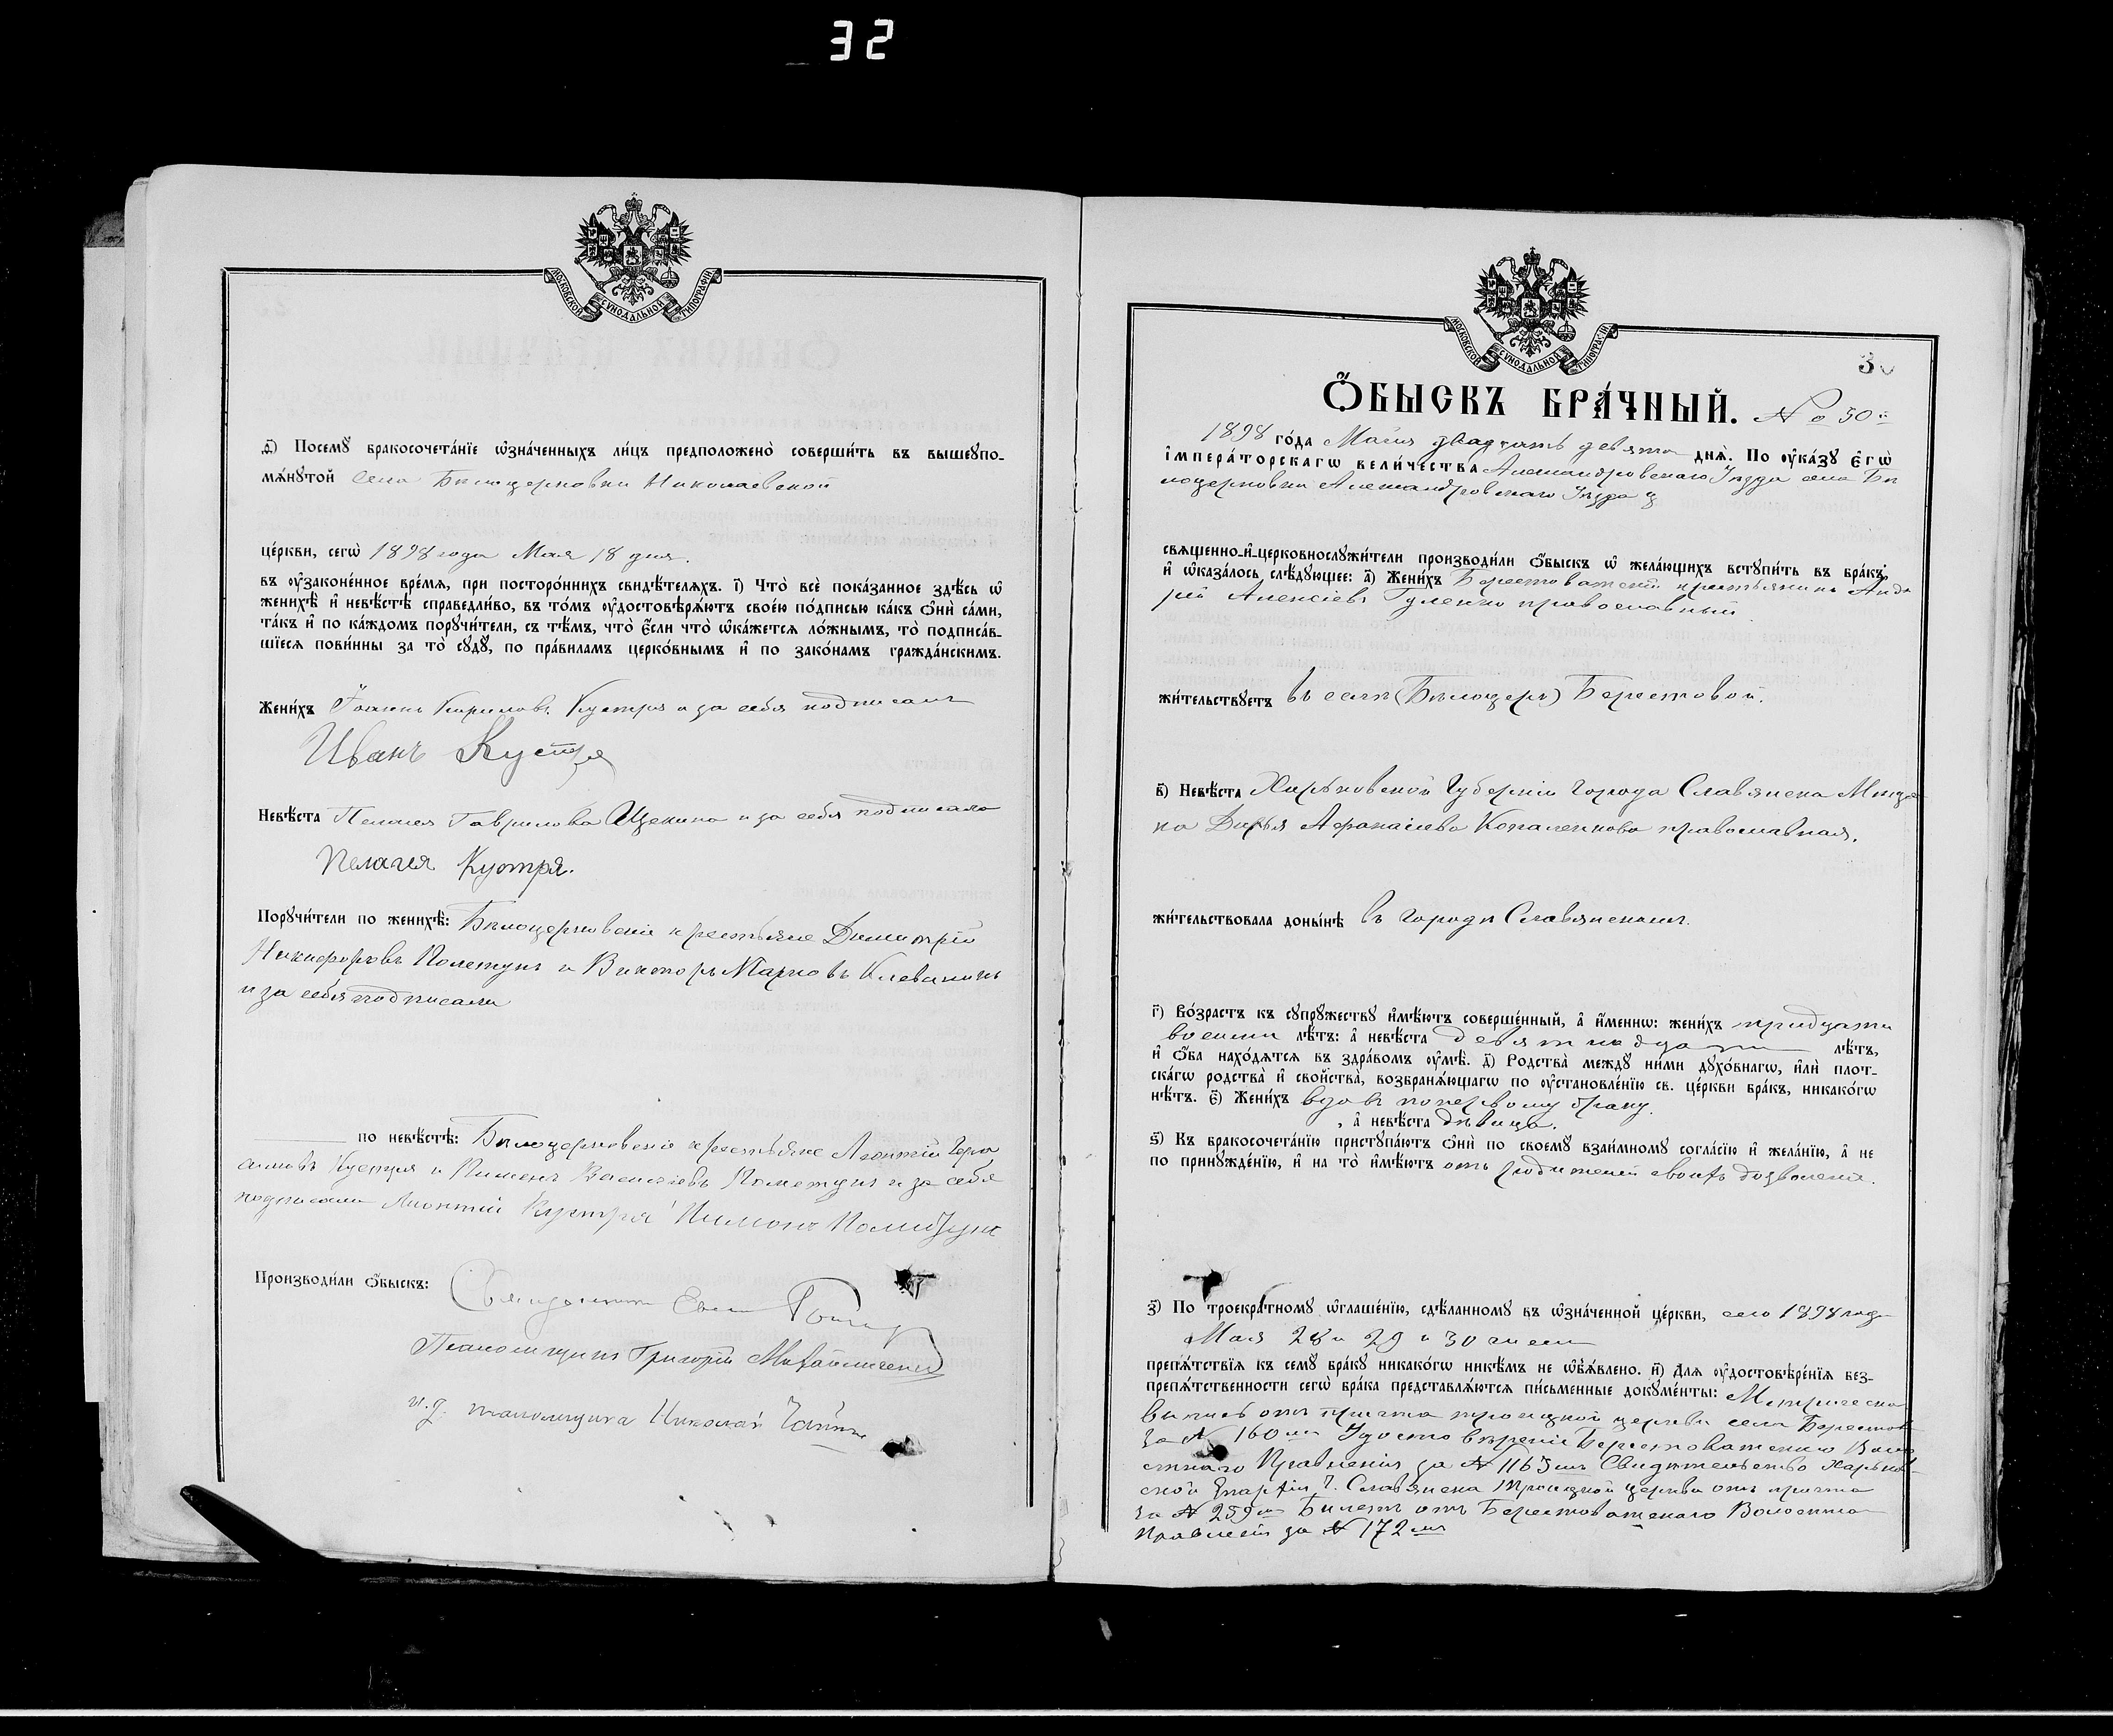 32
МОСКОВСКОЙ СѴНОДАЛЬНОЙ ТИПОГРАФІИ
д҃) Посемꙋ̀ бракосочета́нїе ѡ҆зна́ченныхъ ли́цъ предположено̀ соверши́ть въ вышеꙋпо-
мѧ́нꙋтой села Бѣлоцерковки Николаевской
це́ркви, сегѡ̀ 1898 года Мая 18 дня.
въ ᲂу҆зако́ненное вре́мѧ, при посторо́ннихъ свидѣ́телѧхъ. і҃) Что̀ всѐ пока́занное здѣ́сь ѡ҆
женихѣ̀ и҆ невѣ́стѣ справедли́во, въ то́мъ ᲂу҆достовѣрѧ́ютъ свое́ю по́дписью ка́къ ѻ҆нѝ са́ми,
та́къ и҆ по ка́ждомъ порꙋчи́тели, съ тѣ́мъ, что̀ є҆́сли что̀ ѡ҆ка́жетсѧ ло́жнымъ, то̀ подписа́в-
шїесѧ пови́нны за то̀ сꙋдꙋ̀, по пра́виламъ церко́внымъ и҆ по зако́намъ гражда́нскимъ.
Жени́хъ Іоаннъ Кириловъ Кустря и за себя подписалъ
Иванъ Кустря
Невѣ́ста Пелагея Гаврилова Щекина и за себя подписала
Пелагея Кустря.
Порꙋчи́тели по женихѣ̀: Бѣлоцерковскіе крестьяне Димитрій
Никифоровъ Полетунъ и Викторъ Марковъ
и за себя подписали
по невѣ́стѣ: Бѣлоцерковскіе крестьяне Леонтій
Кустря и Пименъ Василіевъ и за себя
подписали Лионтій Кустря Пимонъ
Производи́ли ѻ҆́быскъ: Священникъ
Псаломщикъ Григорій
и. д. псаломщика Николай
МОСКОВСКОЙ СѴНОДАЛЬНОЙ ТИПОГРАФІИ
30
Ѻ҆́БЫСКЪ БРА́ЧНЫЙ. № 30й
1898 го́да Маія двадцать девята днѧ̀. По ᲂу҆ка́зꙋ є҆гѡ̀
і҆мпера́торскагѡ вели́чества Александровскаго Уѣзда села Бѣ
лоцерковки Александровскаго Уѣзда ц
свѧще́нно-и҆-церковнослꙋжи́тели производи́ли ѻ҆́быскъ ѡ҆ жела́ющихъ встꙋпи́ть въ бра́къ,
и҆ ѡ҆каза́лось слѣ́дꙋющее: а҃) Жени́хъ Берестоватскій крестьянинъ Анд
рій Алексіевъ Гуленко православный
жи́тельствꙋетъ въ селѣ (Бѣлоцерк) Берестовой.
в҃) Невѣ́ста Харьковской Губерніи города Славянска Мѣща
ка Дарья Афанасіева Коваленкова православная.
жи́тельствовала доны́нѣ въ городѣ Славянскомъ.
г҃) Во́зрастъ къ сꙋпрꙋ́жествꙋ и҆мѣ́ютъ соверше́нный, а҆ и҆́меннѡ: жени́хъ тридцати
восьми лѣ́тъ: а҆ невѣ́ста девятнадцати лѣ́тъ,
и҆ ѻ҆́ба нахо́дѧтсѧ въ здра́вомъ ᲂу҆мѣ̀. д҃) Родства̀ междꙋ̀ ни́ми дꙋхо́внагѡ, и҆лѝ плот-
ска́гѡ родства̀ и҆ сво́йства, возбранѧ́ющагѡ по ᲂу҆становле́нїю св. це́ркви бра́къ, никако́гѡ
нѣ́тъ. є҃) Жени́хъ вдовъ по первому браку.
, а҆ невѣ́ста дѣвица.
ѕ҃) Къ бракосочета́нїю пристꙋпа́ютъ ѻ҆нѝ по своемꙋ̀ взаи́мномꙋ согла́сїю и҆ жела́нїю, а҆ не
по принꙋжде́нїю, и҆ на то̀ и҆мѣ́ютъ отъ родителей своихъ дозволеніе.
з҃) По троекра́тномꙋ ѡ҆глаше́нїю, сдѣ́ланномꙋ въ ѡ҆зна́ченной це́ркви, сего 1898 года
Мая 28 и 29 и 30 чиселъ
препѧ́тствїѧ къ семꙋ̀ бра́кꙋ никако́гѡ никѣ́мъ не ѡ҆б̾ѧ́влено. и҃) Длѧ ᲂу҆достовѣре́нїѧ без-
препѧ́тственности сегѡ̀ бра́ка представлѧ́ютсѧ пи́сьменные докꙋме́нты: Метрическа
выпись отъ причта троицкой церкви села Берестов
за № 160мъ Удостовѣреніе Берестоватскаго Воло
стнаго Правленія за № 1165мъ Свидѣтельство Харьков
ской Епархіи г. Славянска Троицкой церкви отъ причта
за № 259мъ Билетъ отъ Берестоватскаго Волостна
Правленія за № 172мъ